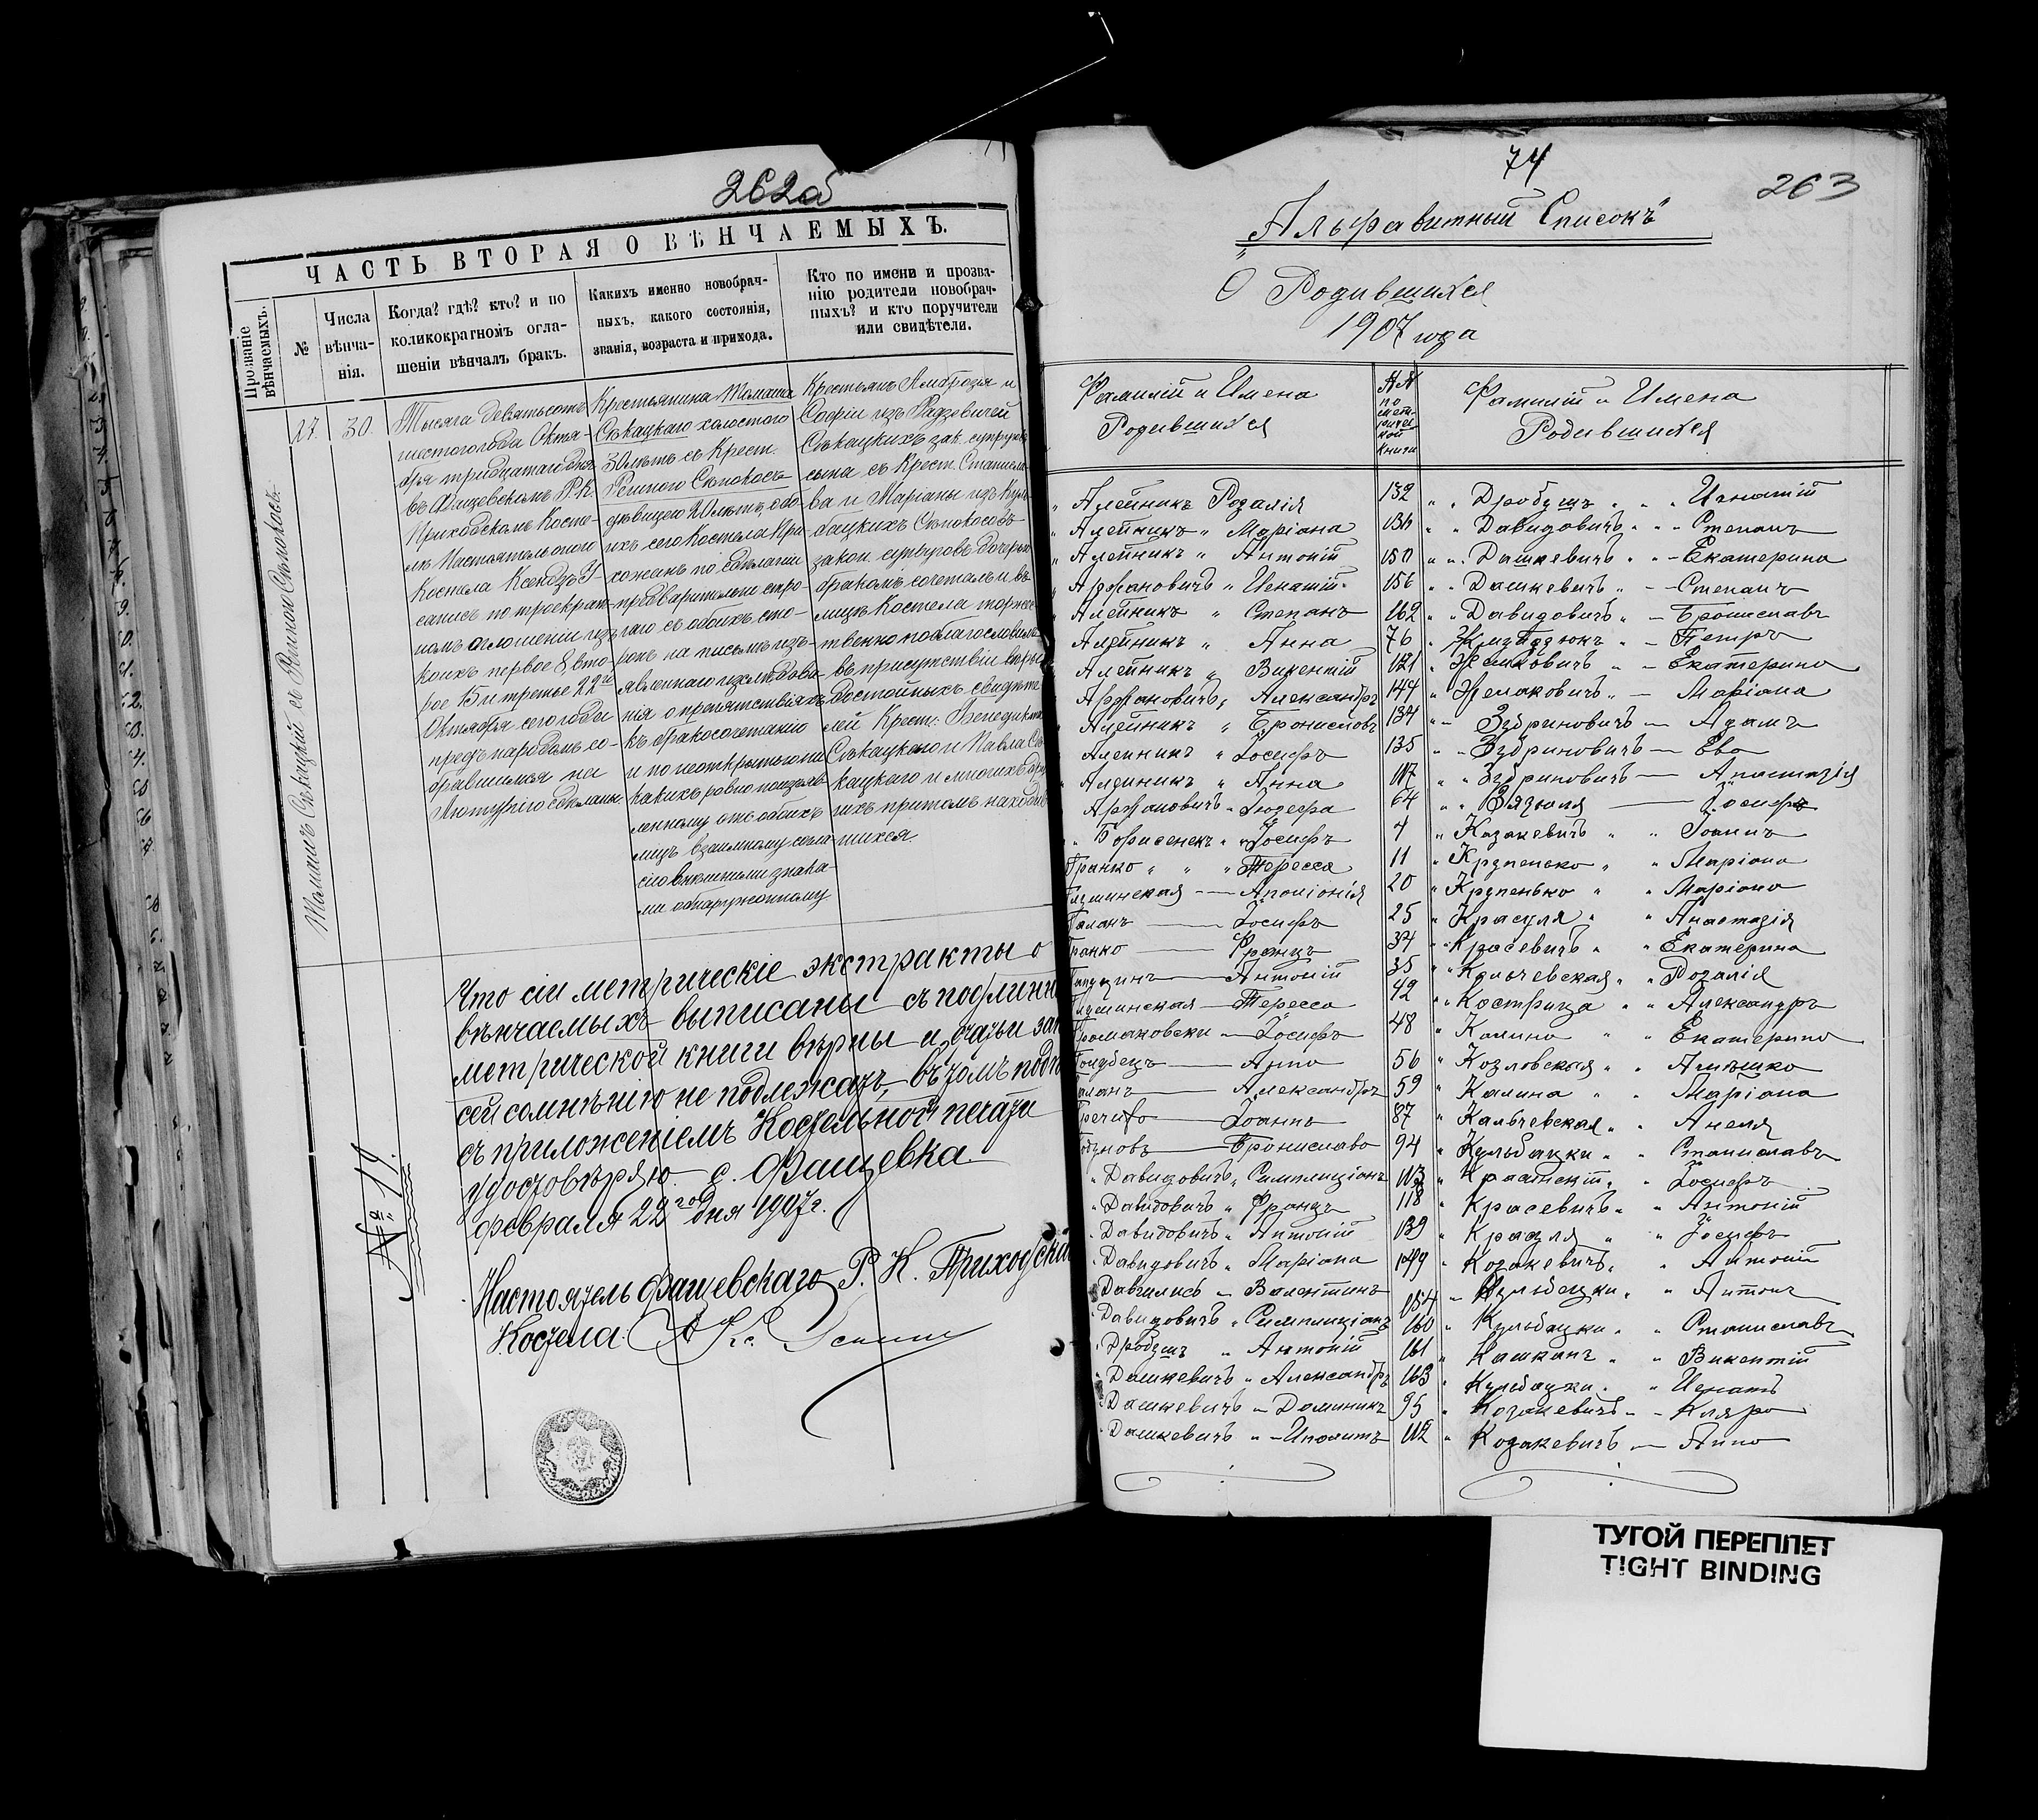 262об
ЧАСТЬ ВТОРАЯ О ВѢНЧАЕМЫХЪ.
Прозваніе вѣнчаемыхъ.
№
Числа вѣнча-
нія.
Когда? гдѣ? кто? и по
коликократномъ огла-
шеніи вѣнчалъ бракъ.
Какихъ именно новобрач-
ныхъ, какого состоянія,
званія, возраста и прихода.
Кто по имени и прозва-
нію родители новобрач-
ныхъ? и кто поручители
или свидѣтели.
27.
30.
Тысяча девятьсотъ
шестого года Октя-
бря тридцатаго дня
въ Фащевскомъ Р.К.
Приходскомъ Косте-
лѣ Настоятель оного
Костела Ксендзъ
по троекрат-
номъ оглошеніи изъ
коихъ первое 8, вто-
рое 15 и третье 22го
Октября сего года
предъ народомъ со-
бравшимся на
Литургію
Крестьянина Томаша
Сѣкацкаго холостого
30 лѣтъ съ Крест.
дѣвицею 20 лѣтъ, обо-
ихъ сего Костела При-
хожанъ по сдѣланіи
предварительно стро-
гаго съ обоихъ сто-
ронъ на письмѣ изъ-
явленнаго изслѣдова-
нія о препятствіяхъ
къ бракосочетанію
и по неоткрытію ни
какихъ ровно
ленному отъ обоихъ
лицъ взаимному согла-
сію внѣшними знака-
ми обнаруженному
Крестьянъ Амброзія и
Софіи изъ Радзевичей
Сѣкацкихъ зак. супруговъ
сына съ Крест. Станисла-
ва и Маріаны изъ Куль-
бацкихъ
закон. супруговъ дочерью
бракомъ сочеталъ и въ
лицѣ Костела торжес-
твенно поблагословилъ
въ присутствіи вѣры
достойныхъ свидѣте-
лей Крест: Бенедикта
Сѣкацкого и Павла Сѣ-
кацкаго и многихъ др
ихъ притомъ находив
шихся.
Что сіи метрическіе экстракты о
вѣнчаемыхъ выписаны съ подлинн
метрической книги вѣрны и
сомнѣнію не подлежатъ, въ томъ подп
съ приложеніемъ Костельной печати
удостовѣряю. с. Фащевка
февраля 22го дня 1907г.
№ 19.
Настоятель Фащевскаго Р. К. Приходскаго
Костела
74
263
„Альфавитный Списокъ“
О Родившихся
1907 года
Фамилій и Имена
Родившихся
№№
по
метри-
чес
кой
книги
Фамилій и Имена
Родившихся
Алейникъ Розалія 132 Дробушъ Игнатій
Алейникъ Маріана 136 Давидовичъ Степанъ
Алейникъ Антоній 150 Дашкевичъ Екатерина
Игнатій 156 Дашкевичъ Степанъ
Алейникъ Степанъ 162 Давидовичъ Брониславъ
Алейникъ Анна 76 Петръ
Алейникъ Викентій 121 Жемаковичъ Екатерина
Александръ 144 Жемаковичъ Маріана
Алейникъ Брониславъ 134 Збриновичъ Адамъ
Алейникъ Іосифъ 135 Збриновичъ Ева
Алейникъ Анна 117 Збриновичъ Анастазія
Іозефа 64 Вязюля Іосифъ
Борисенекъ Іосифъ 4 Казакевичъ Іоаннъ
Гранко Тересса 11 Крупенько Маріана
Аполіонія 20 Крупенько Маріана
Галанъ Іосифъ 25 Красуля Анастазія
Гранко Францъ 34 Красевичъ Екатерина
Антоній 35 Кульчевская Розалія
Тересса 42 Кострица Александръ
Громаковски Іосифъ 48 Калина Екатерина
Голубецъ Анна 56 Козловская
Галанъ Александръ 59 Калина Маріана
Іоаннъ 87 Кальчевская Анеля
Бронислава 94 Кульбацки Станиславъ
Давидовичъ Симплиціанъ 113 Іосифъ
Давидовичъ Францъ 118 Красевичъ Антоній
Давидовичъ Антоній 139 Красуля Іосифъ
Давидовичъ Маріана 149 Козакевичъ Антоній
Валентинъ 154 Кульбацки Антонъ
Давидовичъ Симплиціанъ 160 Кульбацки Станиславъ
Дробушъ Антоній 161 Кашканъ Викентій
Дашкевичъ Александръ 163 Кульбацки Игнатъ
Дашкевичъ Доминикъ 95 Козакевичъ Кляра
Дашкевичъ Иполитъ 112 Козакевичъ Анна
Томашъ Сѣкацкій съ
ТУГОЙ ПЕРЕПЛЕТ
TIGHT BINDING